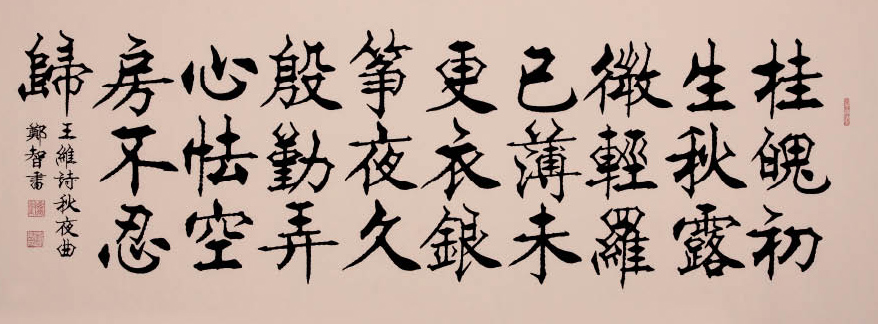 桂魄初
生秋露
微輕羅
已薄未
更衣銀
筝夜久
殷勤弄
心怯空
房不忍
歸
王維詩秋夜曲
鄭智書